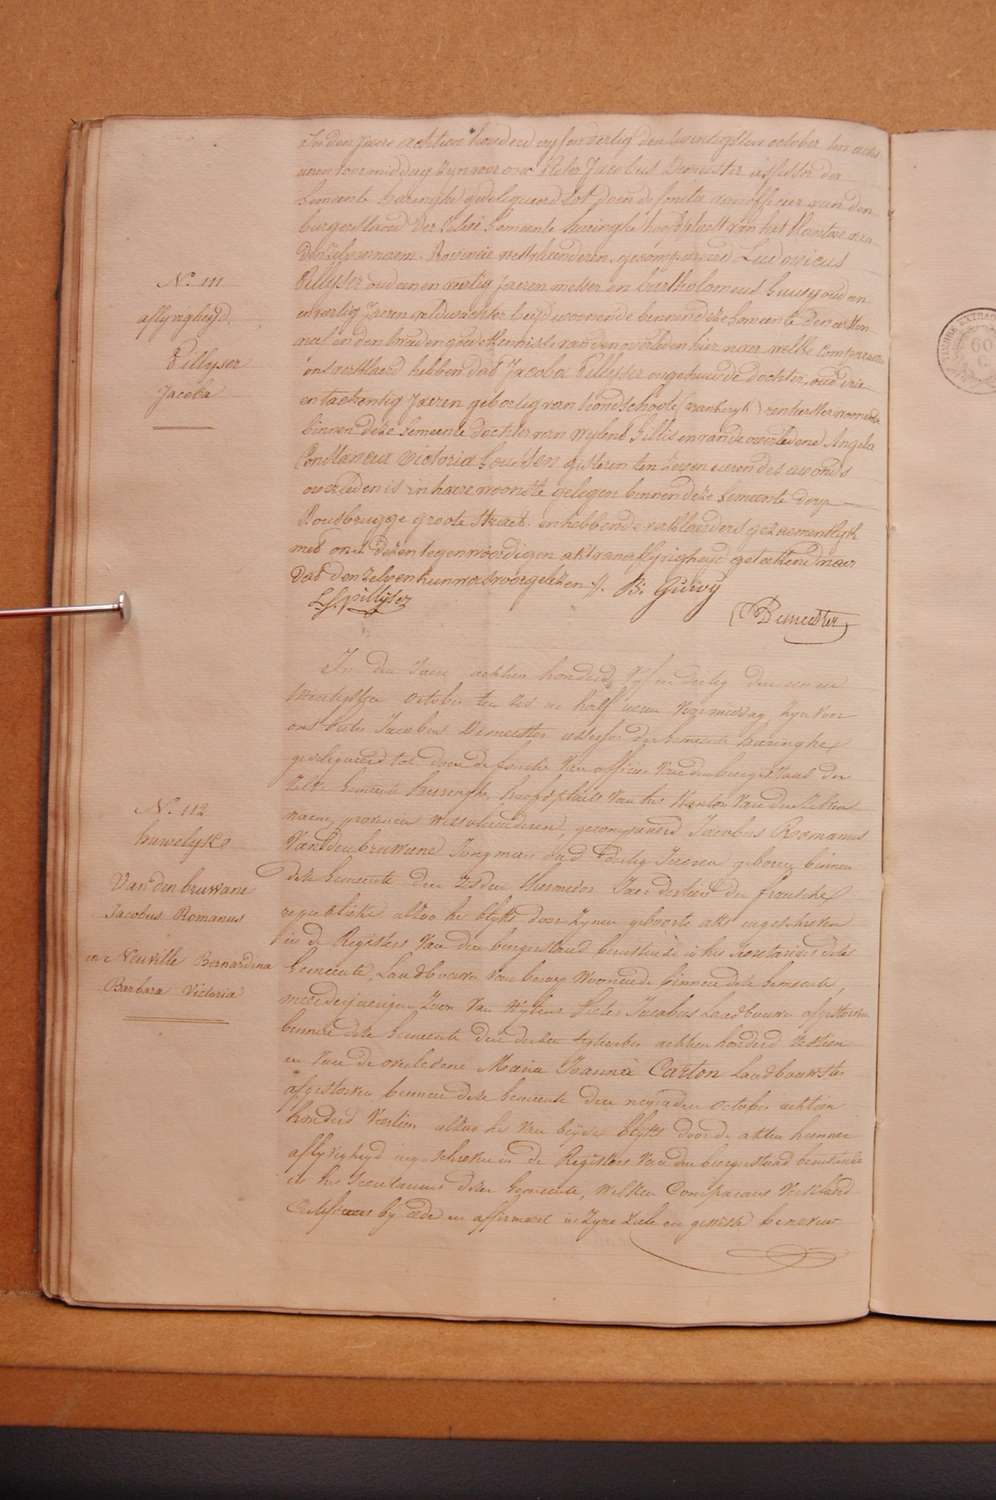 N.° 111
aflyvigheyd
Pillyser
Jacoba
In den jaere achtien honderd vyf en dertig den twintigsten october ten acht
uren voormiddag zyn voor ons Pieter Jacobus Demeester assessor der
Gemeente Haringhe gedelegueerd tot doen de fonctie van officier van den
burgerstand der zelve Gemeente Haringhe hoofdplaets van het kanton van
Provincie westvlaenderen, gecompareerd Ludovicus
Pillyser oud een en veertig jaeren metser en Bartholomeus Guwy oud een
en veertig Jaeren veldwachter beyde woonende binnen deze Gemeente den eersten
den overleden hier naer welke comparanten
ons verklaerd hebben dat Jacoba Pillyser ongehuwde dochter, oud drie
en taehentig Jaeren geboortig van hondschoote (vrankryk) rentierster woonende
binnen deze Gemeente dochter van wylent Gillis en van de overledene Angela
Constantia Victoria gisteren ten zeven uren des avonds
overleden is in haere woonste gelegen binnen deze Gemeente dorp
Rousbrugge groote straet. en hebben de verklaerders gezaementlyk
met ons dezen tegenwoordigen akt van aflyvigheyd geteekend naer
dat den zelven hun was voorgelezen ./. B: Guwy
L. Pillyser
Demeester
N.° 112
huwelyk
Van den bruwane
Jacobus Romanus
en Neuville Bernardina
Barbara Victoria
In den Jaere achtien honderd vyf en dertig den een en
twintigsten october ten zes en half uren voormiddag, zyn voor
ons Pieter Jacobus Demeester assessor der gemeente Haringhe
gedelegueerd tot doen de fonctie van officier van den burgerstand der
zelve Gemeente Haeringhe, hoofdplaets van het kanton van den zelven
naem, provincie westvlaenderen, gecompareerd Jacobus Romanus
Vanden bruwane Jongman oud dertig Jaeren geboren binnen
deze Gemeente den zesden thermidor Jaer derthien der fransche
republieke alzoo het blykt door zynen geboorte akt ingeschreven
in de Registers van den burgerstand berustende in het secretariat dezer
Gemeente, Landbouwer van beroep woonende binnen deze Gemeente,
meerderjaerigen zoon van wylent Pieter Jacobus Landbouwer afgestorven
binnen deze Gemeente den derden september achtien honderd
en van de overledene Maria Joanna Carton Landbouwster
afgestorven binnen deze Gemeente den negenden october achtien
honderd veertien alzoo het van beyde blykt door de akten hunner
aflyvigheyd ingeschreven in de Registers van den burgerstand berustende
in het secretariat dezer Gemeente, welken Comparant verklaerd
by eede en affirmeert in zyne ziele en